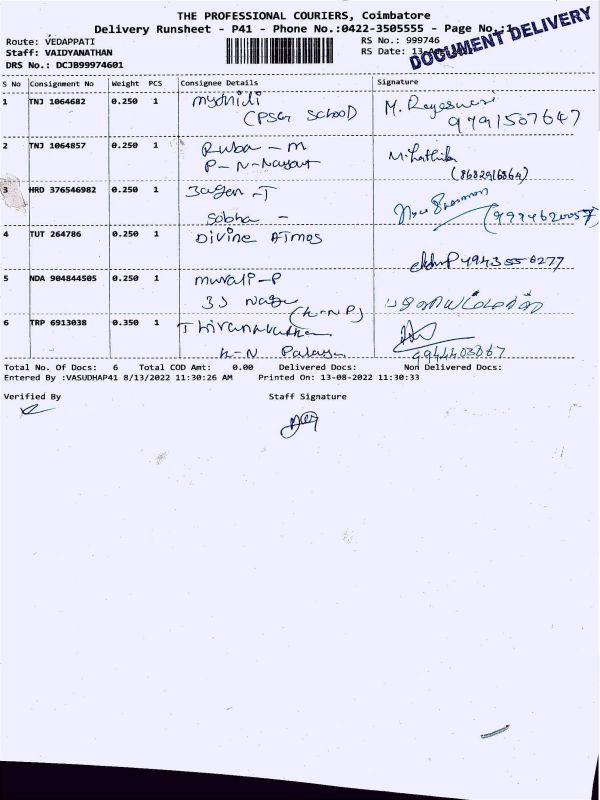 THE PROFESSIONAL COURIERS, Coimbatore
Delivery Runsheet - P41 - Phone No.:0422-3505555 - Page No.:1
DOCUMENT DELIVERY
Route: VEDAPPATI RS No.: 999746
Staff: VAIDYANATHAN RS Date: 13-
DRS No.: DCJB99974601
S No Consignment No Weight PCS Consignee Details Signature
1 TNJ 1064682 0.250 1
(PSG School) 9791507647
2 TNJ 1064857 0.250 1 Ruba - M M. Lathika
P-N-
(8682916864)
3 HRD 376546982 0.250 1 Jagan -T
Sobha -
4 TUT 264786 0.250 1 Divine ATMOS
5 NDA 904844505 0.250 1 murali-P
(K-NP)
6 TRP 6913038 0.350 1
K-N
9944403867
Total No. Of Docs: 6 Total COD Amt: 0.00 Delivered Docs: Non Delivered Docs:
Entered By :VASUDHAP41 8/13/2022 11:30:26 AM Printed On: 13-08-2022 11:30:33
Verified By Staff Signature